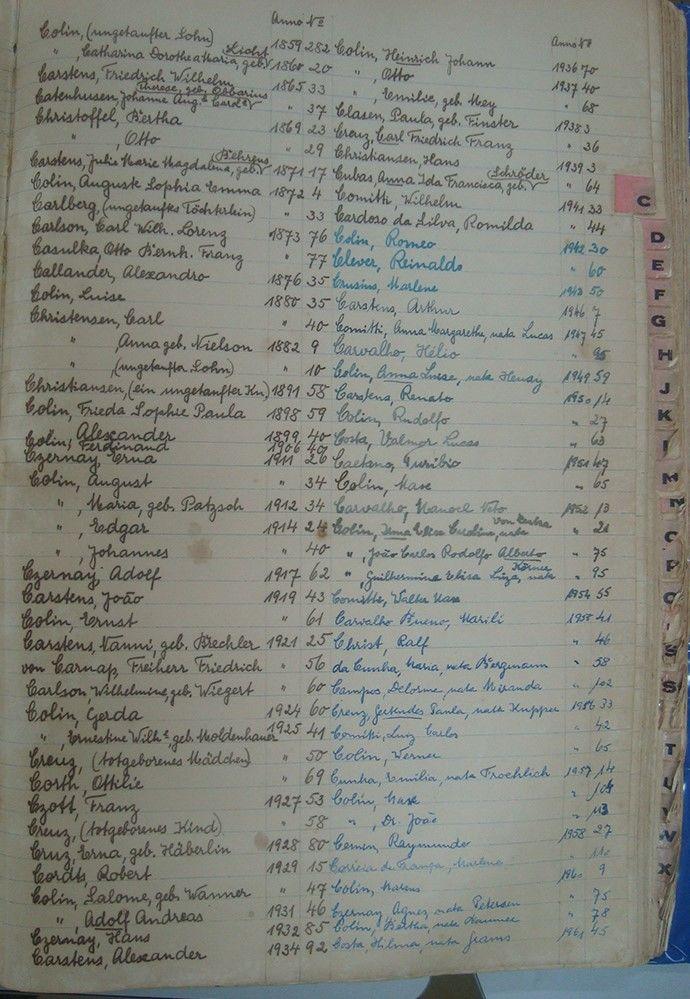 Anno No
Colin, (ungetaufter Sohn) 1859 282
" , Catharina Dorothea Maria, geb. Licht 1860 20
Carstens, Friedrich Wilhelm 1865 33
Catenhusen, Johanne Aug. Carol. Therese, geb. " 37
Christoffel, Bertha 1869 23
" , Otto " 29
Carstens, Julie Marie Magdalena, geb. Behrens 1871 17
Colin, August Sophia Emma 1872 4
Carlberg, (ungetauftes Töchterlein) " 33
Carlson, Carl Wilh. Lorenz 1873 76
Casulka, Otto Bernh. Franz " 77
Callander, Alexandro 1876 35
Colin, Luise 1880 35
Christensen, Carl " 40
" Anna geb. Nielson 1882 9
" (ungetaufter Sohn) " 10
Christiansen, (ein ungetaufter Kn.) 1891 58
Colin, Frieda Sophie Paula 1898 59
Colin, Alexander 1899 40
Colin, Ferdinand 1906 40
Czernay, Erna 1911 26
Colin, August " 34
" , Maria, geb. Patzsch 1912 34
" , Edgar 1914 24
" , Johannes " 40
Czernay, Adolf 1917 62
Carstens, João 1919 43
Colin, Ernst " 61
Carstens, Nanni, geb. Brechler 1921 25
von Carnap, Freiherr Friedrich " 56
Carlson Wilhelmine, geb. Wiegert " 60
Colin, Gerda 1924 60
" , Ernestine Wilh. geb. Moldenhauer 1925 41
Creuz, (totgeborenes Mädchen) " 50
Corth, Ottilie " 69
Czott, Franz 1927 53
Creuz, (totgeborenes Kind) " 58
Cruz, Erna, geb. Häberlin 1928 80
Cordts, Robert 1929 15
Colin, Salome, geb. Wanner " 47
" , Adolf Andreas 1931 46
Czernay, Hans 1932 85
Carstens, Alexander 1934 92
Anno No
Colin, Heinrich Johann 1936 70
" , Otto 1937 40
" , Emilie, geb. Mey " 68
Clasen, Paula, geb. Finster 1938 3
Creuz, Carl Friedrich Franz " 36
Christiansen, Hans 1939 3
Cubas, Anna Ida Francisca, geb. Schröder " 64
Comitti, Wilhelm 1941 33
Cardoso da Silva, Romilda " 44
Colin, Romeo 1942 30
Clever, Reinaldo " 60
Crusius, Marlene 1943 50
Carstens, Arthur 1946 7
Comitti, Anna Margarethe, nata Lucas 1947 45
Carvalho, Hélio " 95
Colin, Anna Luise, nata Henay 1949 59
Carstens, Renato 1950 14
Colin, Rudolfo " 27
Costa, Valmor Lucas " 63
Caetano, Euribio 1951 47
Colin, Max " 65
Carvalho, Manoel Neto 1952 13
Colin, Irma Elisa Carolina, nata von " 26
" , João Carlos Rodolfo Alberto " 75
" , Guilhermina Elisa Liza, nata Körner " 95
Comitti, Walter Max 1954 55
Carvalho Bueno, Marili 1955 41
Christ, Ralf " 46
da Cunha, Maria, nata Bergmann " 58
Campos, Delorme, nata Miranda " 102
Creuz, Gertrudes Paula, nata Kupper 1956 33
Comitti, Luiz Carlos " 42
Colin, Werner " 65
Cunha, Emilia, nata Froehlich 1957 14
Colin, Max " 104
" , Dr. João " 113
Cemin, Raymundo 1958 27
Correia de França, Marlene " 110
Colin, Mateus 1960 9
Czernay, Agnes, nata Petersen " 75
Colin, Bertha, nata " 78
Costa, Hilma, nata 1961 45
C
D
E
F
G
H
J
K
L
M
N
O
P
Q
S
S
T
U
V
W
X